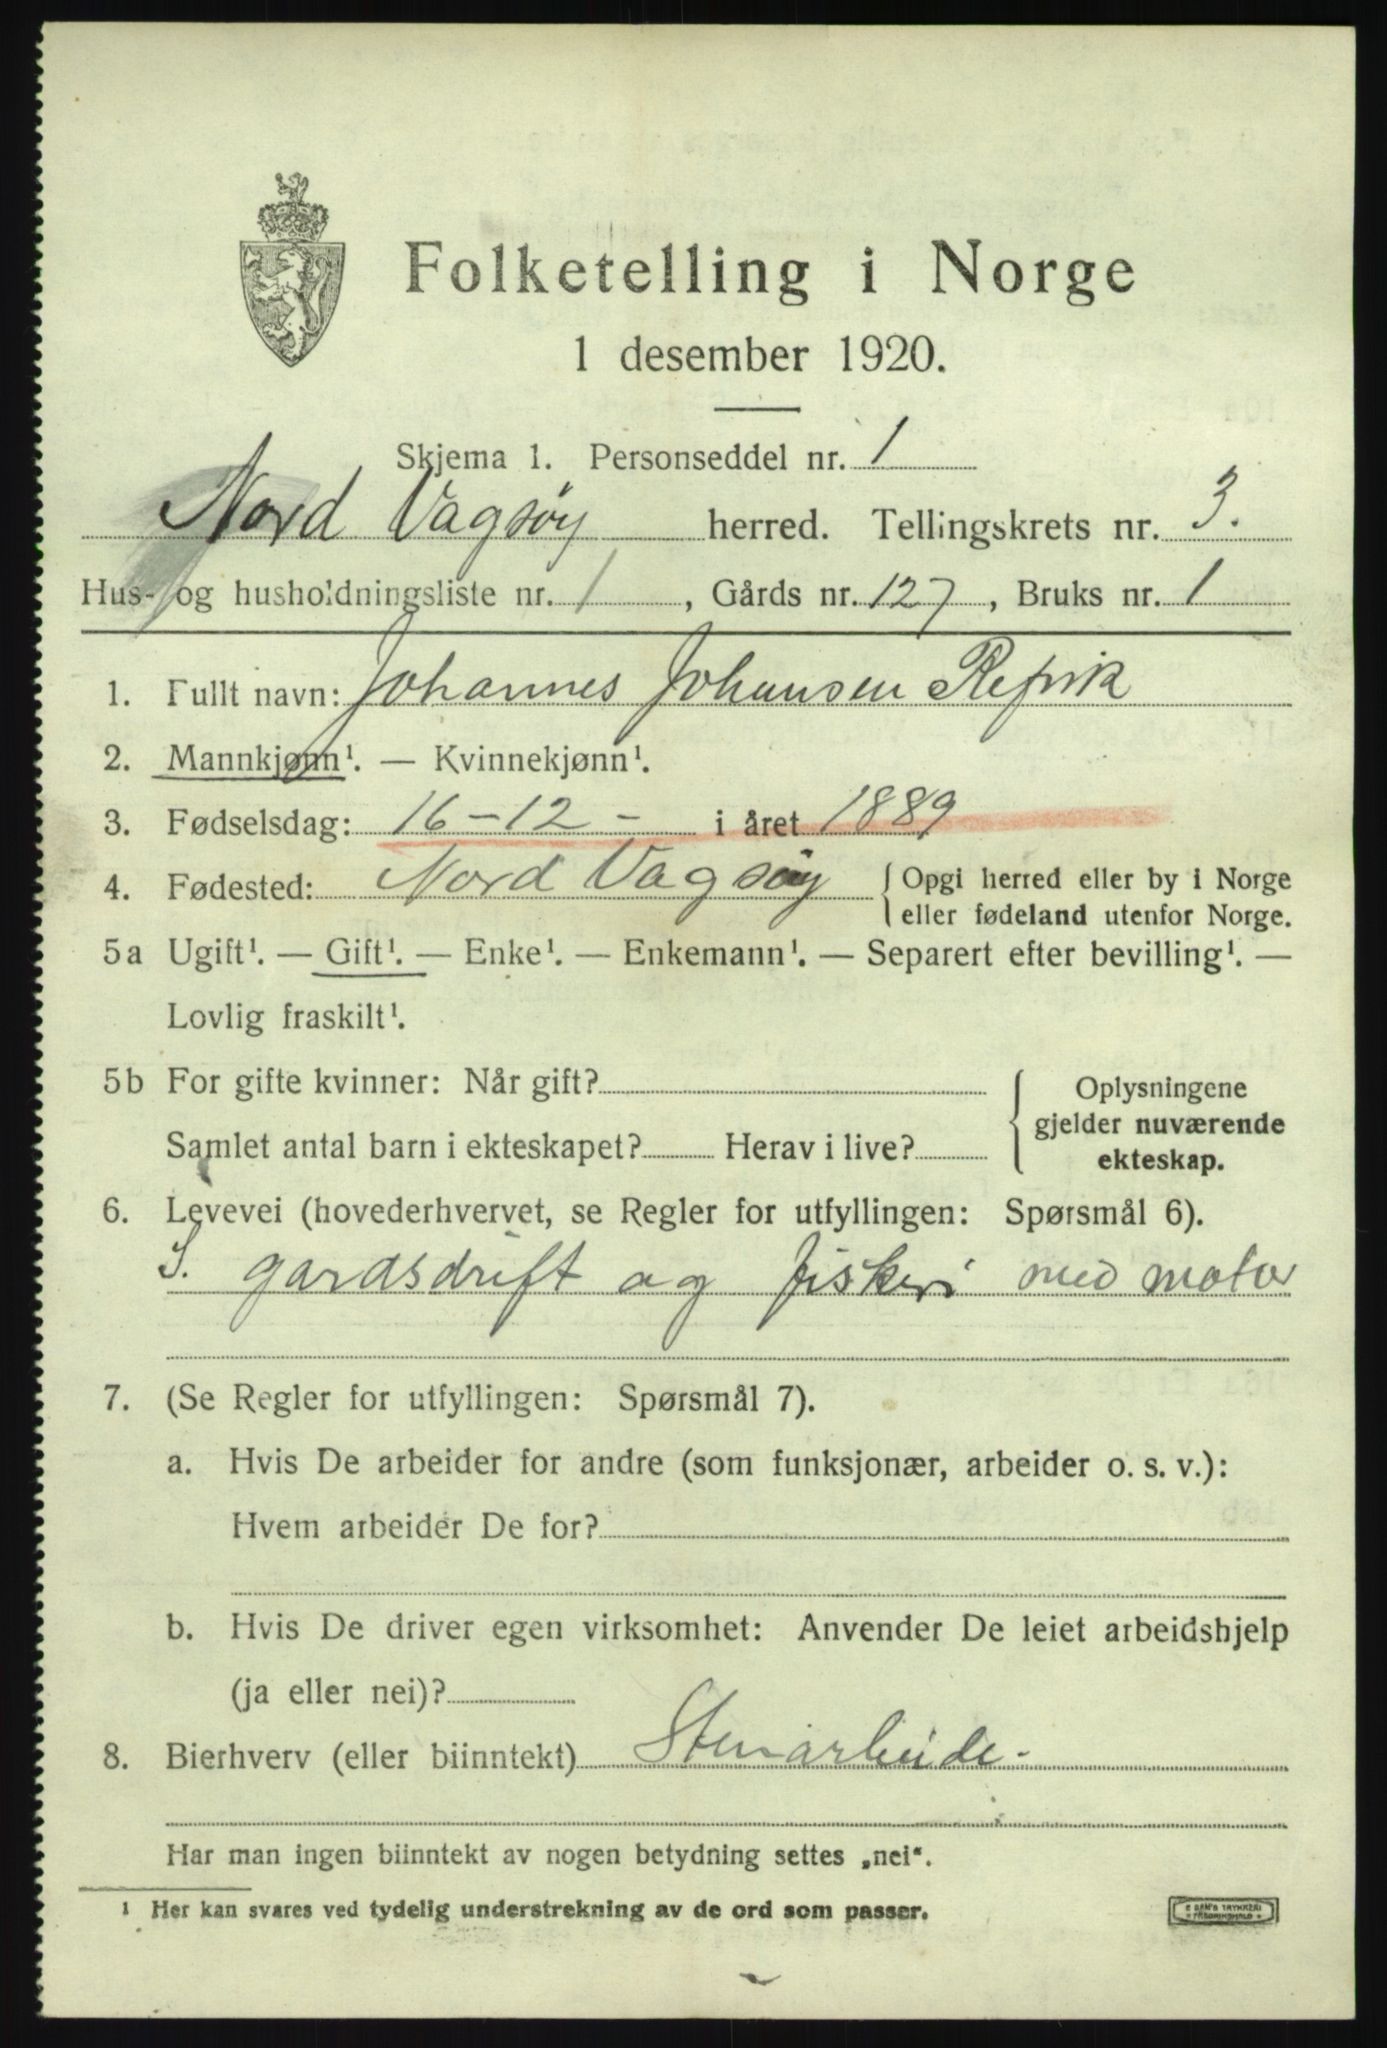 Folketelling i Norge
1 desember 1920.
Skjema 1. Personseddel nr. 1
Nord Vagsøy herred. Tellingskrets nr. 3.
Hus- og husholdningsliste nr. 1, Gårds nr. 127, Bruks nr. 1
1. Fullt navn: Johannes Johansen Refvik
2. Mannkjønn¹. — Kvinnekjønn¹.
3. Fødselsdag: 16-12- i året 1889
4. Fødested: Nord Vagsøy { Opgi herred eller by i Norge
eller fødeland utenfor Norge.
5a Ugift¹. — Gift¹. — Enke¹. — Enkemann¹. — Separert efter bevilling¹. —
Lovlig fraskilt¹.
5b For gifte kvinner: Når gift?
Samlet antal barn i ekteskapet? Herav i live?
Oplysningene
gjelder nuværende
ekteskap.
6. Levevei (hovederhvervet, se Regler for utfyllingen: Spørsmål 6).
S. gardsdrift og fiskeri med motor
7. (Se Regler for utfyllingen: Spørsmål 7).
a. Hvis De arbeider for andre (som funksjonær, arbeider o. s. v.):
Hvem arbeider De for?
b. Hvis De driver egen virksomhet: Anvender De leiet arbeidshjelp
(ja eller nei)?
8. Bierhverv (eller biinntekt) Stenarbeide.
Har man ingen biinntekt av nogen betydning settes „nei“.
¹ Her kan svares ved tydelig understrekning av de ord som passer.